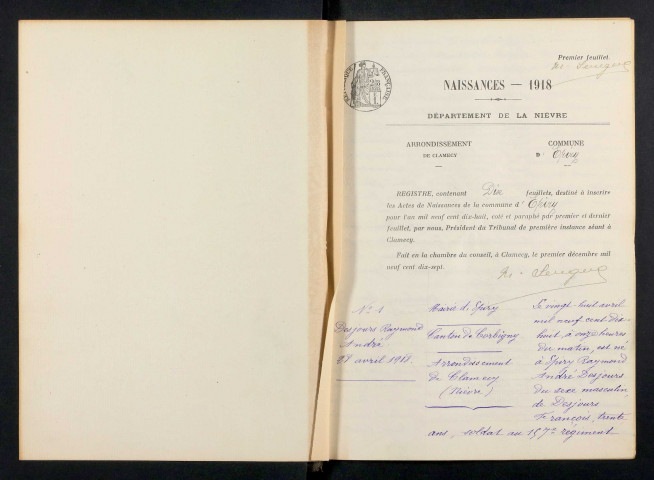 Premier feuillet
RÉPUBLIQUE FRANÇAISE
NAISSANCES — 1918
DÉPARTEMENT DE LA NIÈVRE
ARRONDISSEMENT
DE CLAMECY
COMMUNE
D' Epiry
REGISTRE, contenant Dix feuillets, destiné à inscrire
les Actes de Naissances de la commune d' Epiry
pour l'an mil neuf cent dix-huit, coté et paraphé par premier et dernier
feuillet, par nous, Président du Tribunal de première instance séant à
Clamecy.
Fait en la chambre du conseil, à Clamecy, le premier décembre mil
neuf cent dix-sept.
N° 1
Desjours Raymond
André
28 avril 1918.
Mairie d'Epiry
Canton de Corbigny
Arrondissement
de Clamecy
(Nièvre)
Le vingt-huit avril
mil neuf cent dix-
huit, à onze heures
du matin, est né
à Epiry Raymond
André Desjours
du sexe masculin,
de Desjours
François, trente
ans, soldat au 157e régiment